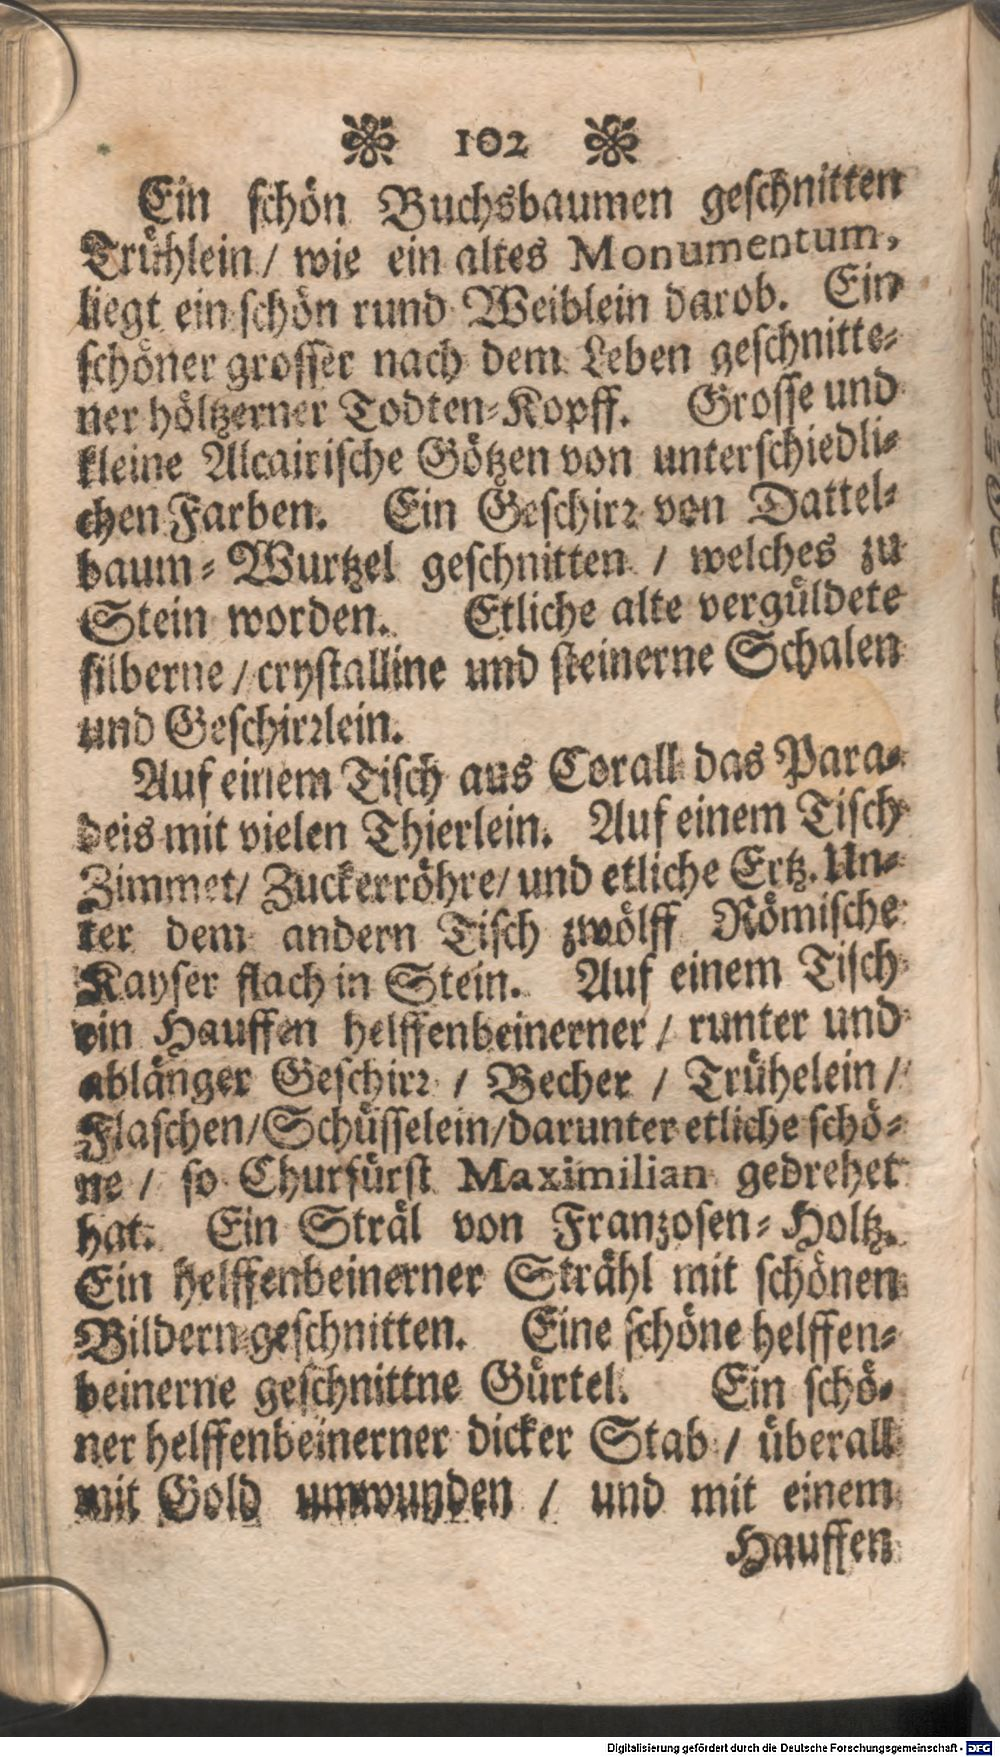 102
Ein schön Buchsbaumen geschnitten
Trühlein / wie ein altes Monumentum,
liegt ein schön rund Weiblein darob. Ein
schöner grosser nach dem Leben geschnitte-
ner höltzerner Todten-Kopff. Grosse und
kleine Alcairische Götzen von unterschiedli-
chen Farben. Ein Geschirr von Dattel-
baum-Wurtzel geschnitten / welches zu
Stein worden. Etliche alte vergüldete
silberne / crystalline und steinerne Schalen
und Geschirrlein.
Auf einem Tisch aus Corall das Para-
deis mit vielen Thierlein. Auf einem Tisch
Zimmet / Zuckerröhre / und etliche Ertz. Un-
ter dem andern Tisch zwölff Römische
Kayser flach in Stein. Auf einem Tisch
ein Hauffen helffenbeinerner / runter und
ablänger Geschirr / Becher / Trühelein /
Flaschen / Schüsselein / darunter etliche schö-
ne / so Churfürst Maximilian gedrehet
hat. Ein Sträl von Franzosen-Holtz.
Ein helffenbeinerner Strähl mit schönen
Bildern geschnitten. Eine schöne helffen-
beinerne geschnittne Gürtel. Ein schö-
ner helffenbeinerner dicker Stab / überall
mit Gold umwunden / und mit einem
Hauffen
Digitalisierung gefördert durch die Deutsche Forschungsgemeinschaft - DFG